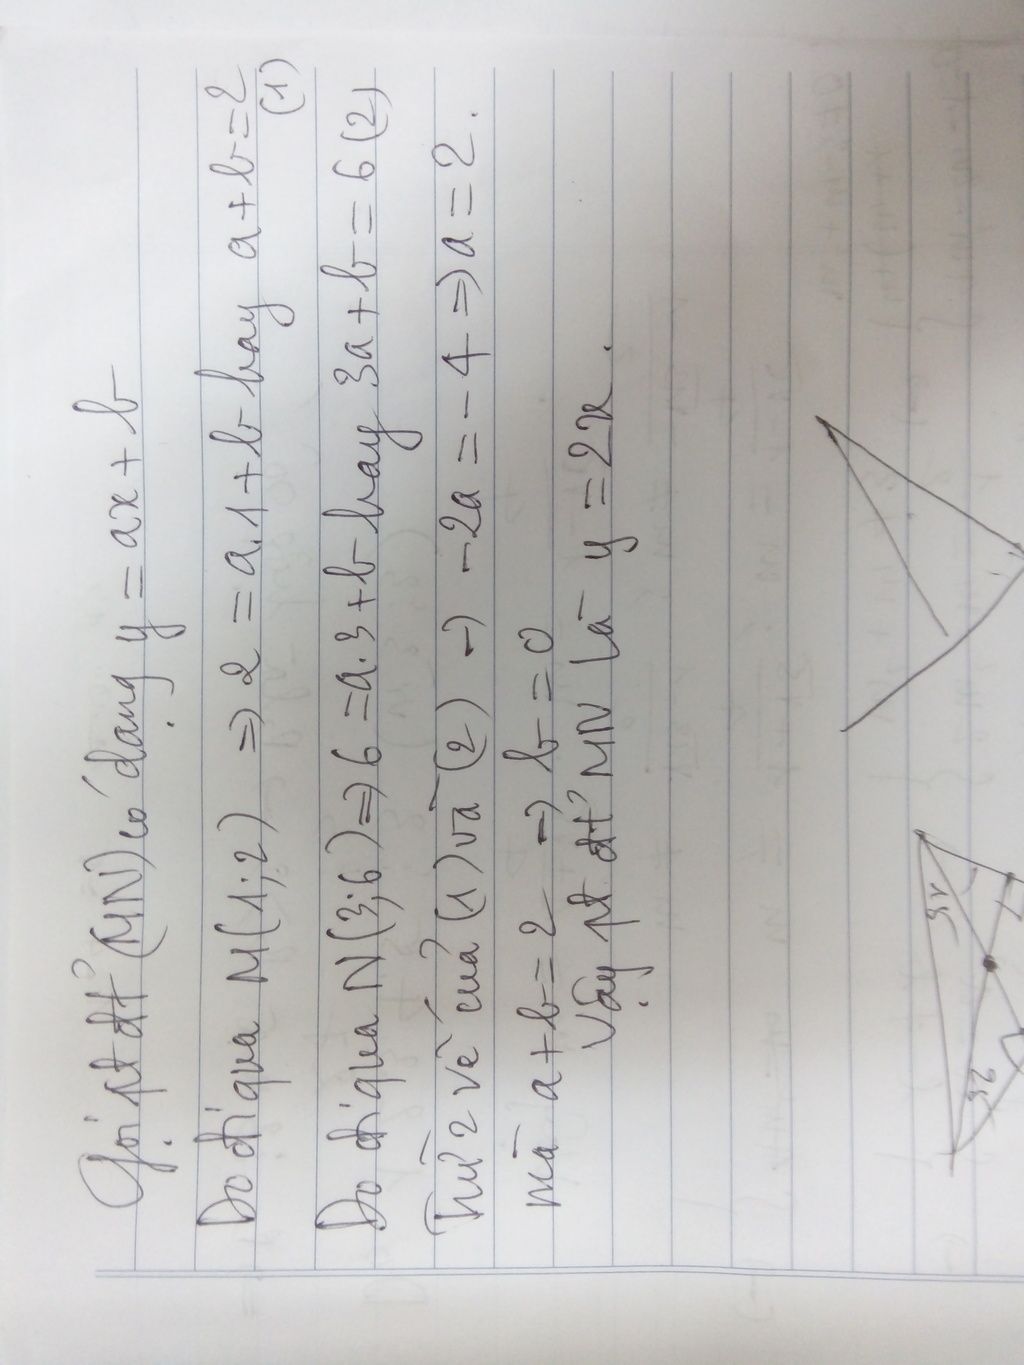 Gọi pt đt' (MN) có dạng y = ax + b
Do đi qua M(1;2) => 2 = a.1 + b hay a + b = 2
(1)
Do đi qua N(3;6) => 6 = a.3 + b hay 3a + b = 6 (2)
Trừ 2 vế của (1) và (2) -> -2a = -4 => a = 2.
mà a + b = 2 -> b = 0
Vậy pt đt' MN là y = 2x.